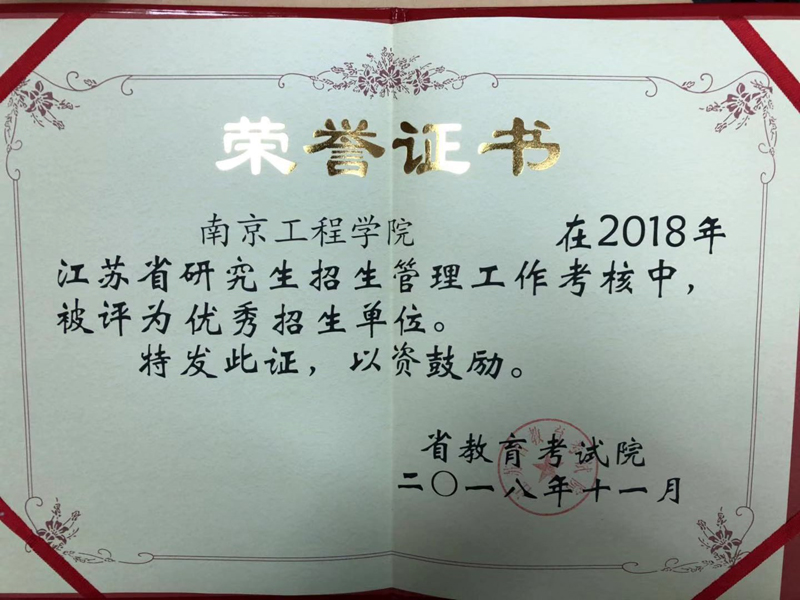 荣誉证书
南京工程学院 在2018年
江苏省研究生招生管理工作考核中，
被评为优秀招生单位。
特发此证，以资鼓励。
省教育考试院
二〇一八年十一月